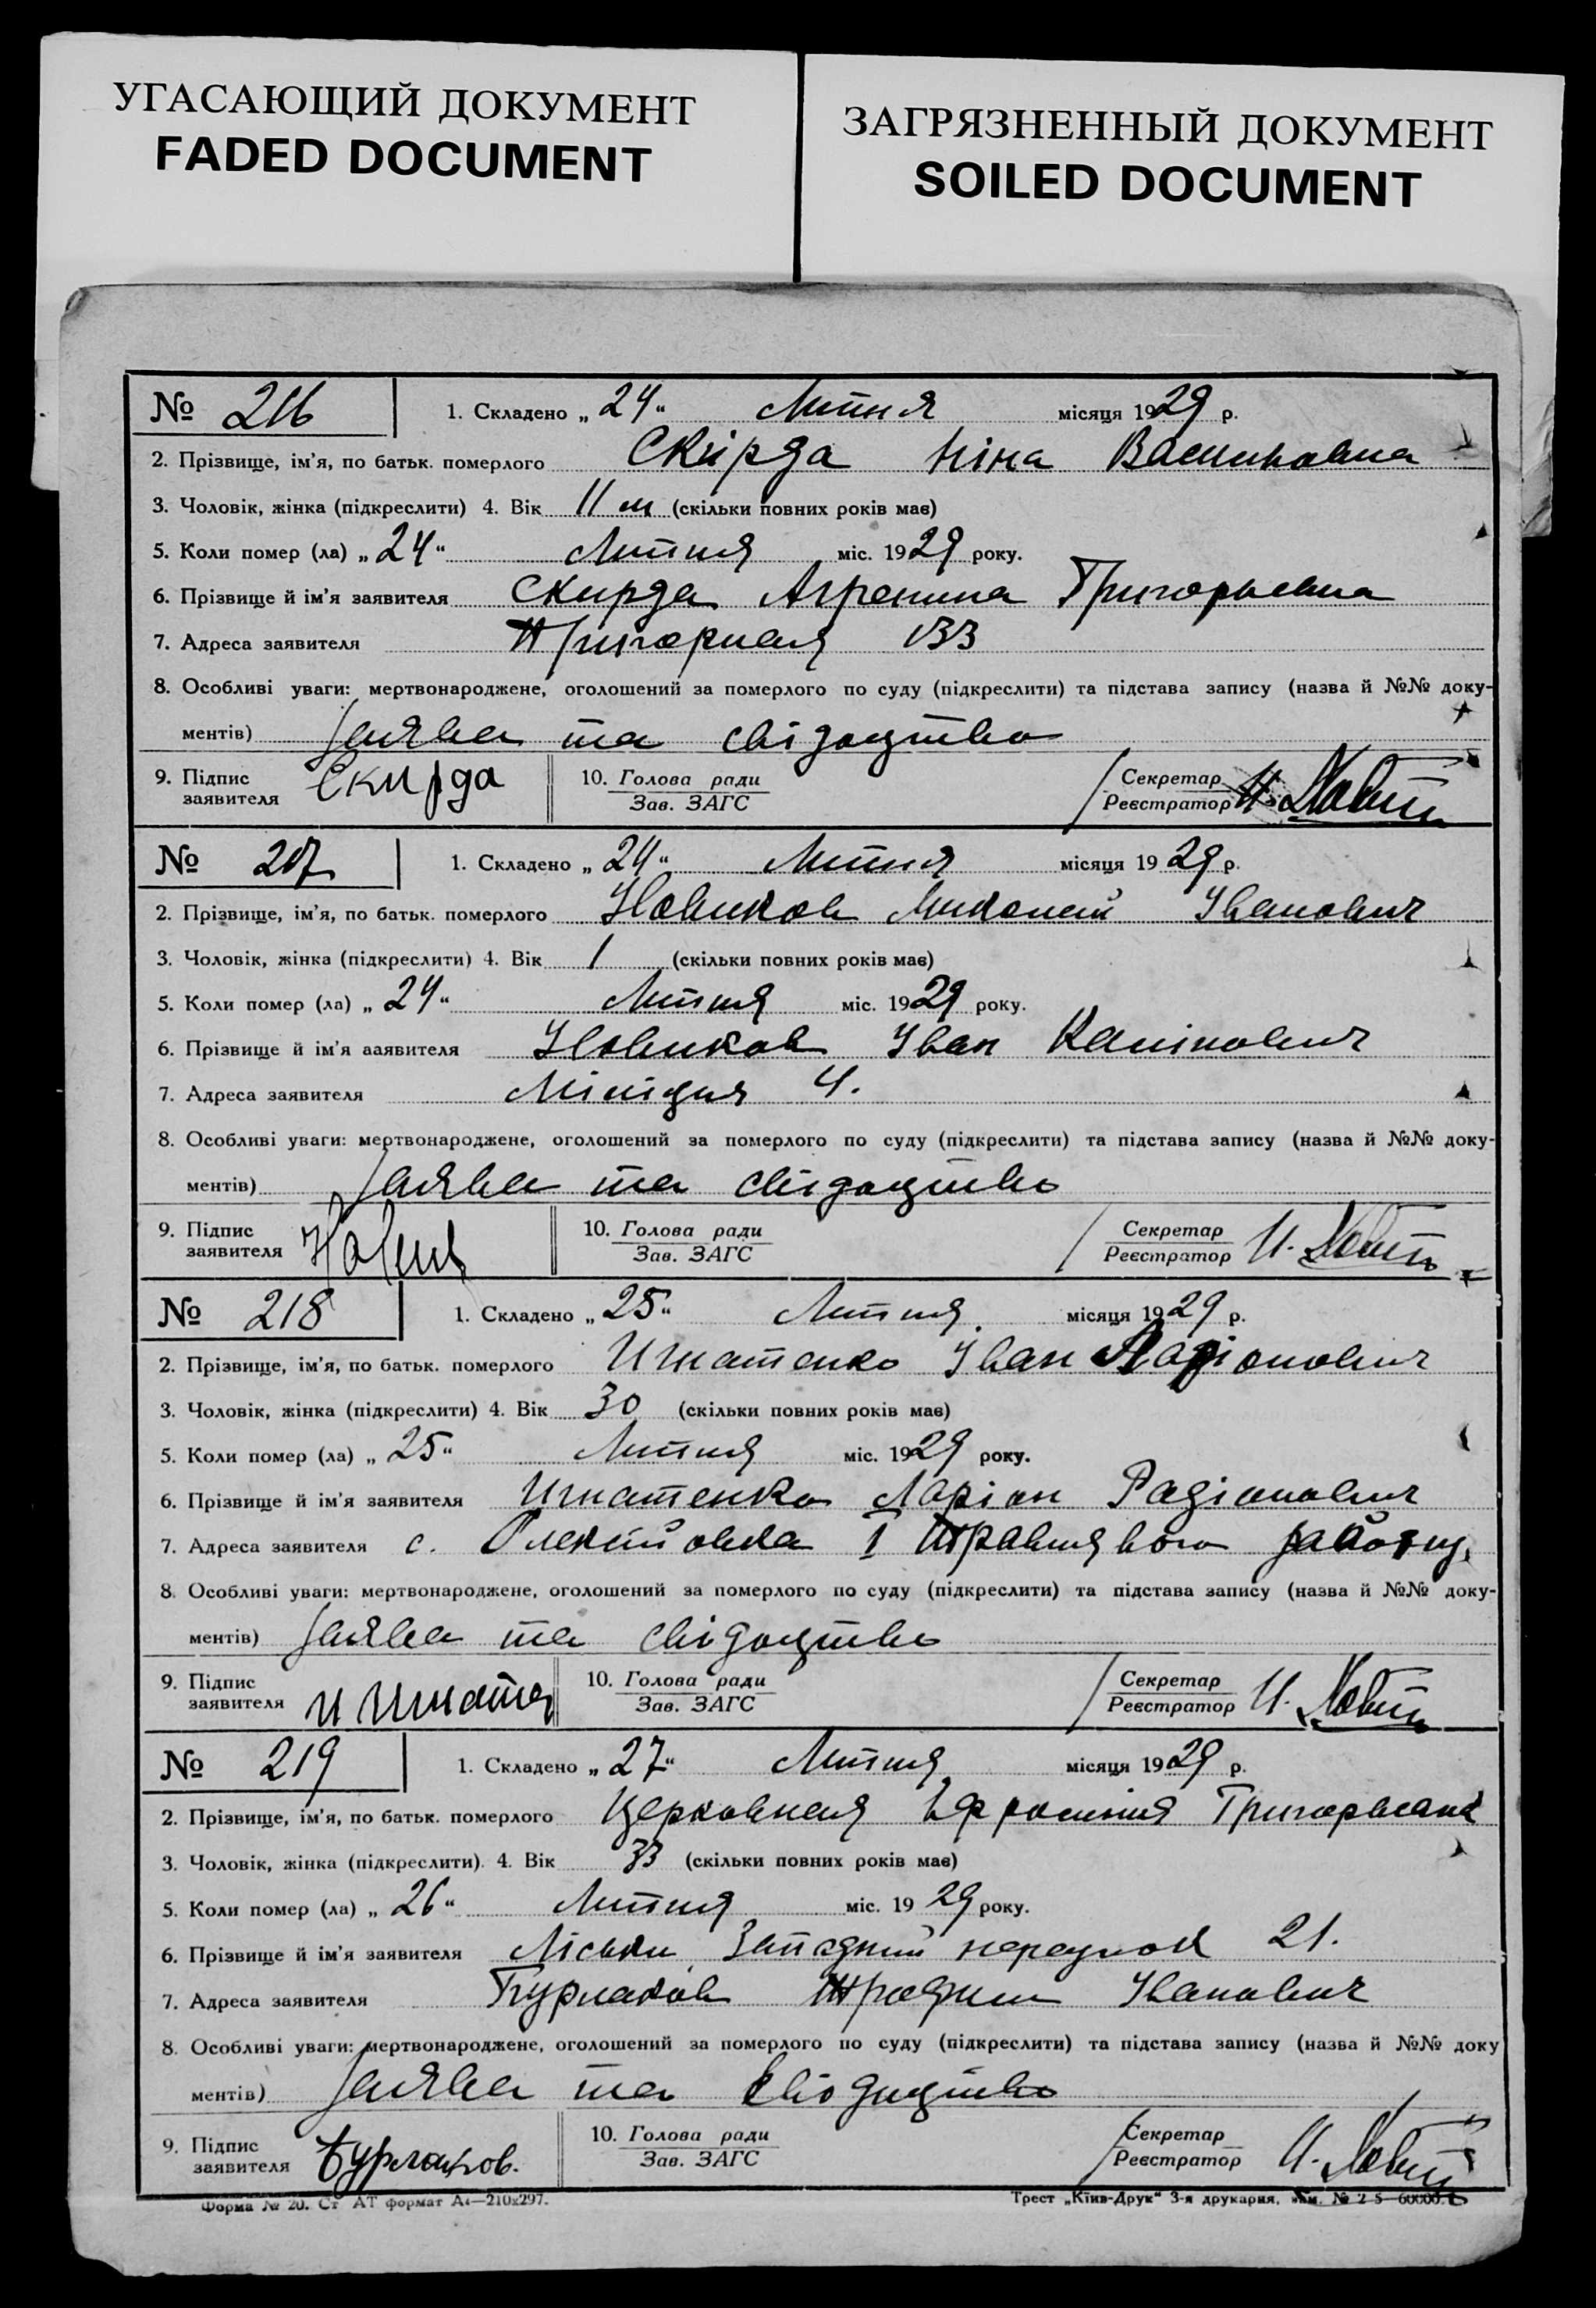 УГАСАЮЩИЙ ДОКУМЕНТ
FADED DOCUMENT
ЗАГРЯЗНЕННЫЙ ДОКУМЕНТ
SOILED DOCUMENT
№ 216 1. Складено „ 24 “ Липня місяця 1929 р.
2. Прізвище, ім'я, по батьк. померлого Скирда Ніна Васильовна
3. Чоловік, жінка (підкреслити) 4. Вік 11 м (скільки повних років має)
5. Коли помер (ла) „ 24 “ Липня міс. 1929 року.
6. Прізвище й ім'я заявителя Скирда Агрепина Григорьевна
7. Адреса заявителя 133
8. Особливі уваги: мертвонароджене, оголошений за померлого по суду (підкреслити) та підстава запису (назва й №№ доку-
ментів) Заява та свідоцтво
9. Підпис заявителя Скирда 10. Голова ради Зав. ЗАГС Секретар Реєстратор
№ 217 1. Складено „ 24 “ Липня місяця 1929 р.
2. Прізвище, ім'я, по батьк. померлого Новиков Миколай Іванович
3. Чоловік, жінка (підкреслити) 4. Вік 1 (скільки повних років має)
5. Коли помер (ла) „ 24 “ Липня міс. 1929 року.
6. Прізвище й ім'я заявителя Новиков Іван
7. Адреса заявителя 4.
8. Особливі уваги: мертвонароджене, оголошений за померлого по суду (підкреслити) та підстава запису (назва й №№ доку-
ментів) Заява та свідоцтво
9. Підпис заявителя 10. Голова ради Зав. ЗАГС Секретар Реєстратор
№ 218 1. Складено „ 25 “ Липня місяця 1929 р.
2. Прізвище, ім'я, по батьк. померлого Игнатенко Іван Ларіонович
3. Чоловік, жінка (підкреслити) 4. Вік 30 (скільки повних років має)
5. Коли помер (ла) „ 25 “ Липня міс. 1929 року.
6. Прізвище й ім'я заявителя Игнатенко Ларіон Радіонович
7. Адреса заявителя с. I
8. Особливі уваги: мертвонароджене, оголошений за померлого по суду (підкреслити) та підстава запису (назва й №№ доку-
ментів) Заява та свідоцтво
9. Підпис заявителя 10. Голова ради Зав. ЗАГС Секретар Реєстратор
№ 219 1. Складено „ 27 “ Липня місяця 1929 р.
2. Прізвище, ім'я, по батьк. померлого Церковная Ефросинія Григорьевна
3. Чоловік, жінка (підкреслити). 4. Вік 33 (скільки повних років має)
5. Коли помер (ла) „ 26 “ Липня міс. 1929 року.
6. Прізвище й ім'я заявителя Ліски Западний переулок 21.
7. Адреса заявителя Бурлаков Іванович
8. Особливі уваги: мертвонароджене, оголошений за померлого по суду (підкреслити) та підстава запису (назва й №№ доку
ментів) Заява та свідоцтво
9. Підпис заявителя Бурлаков. 10. Голова ради Зав. ЗАГС Секретар Реєстратор
Форма № 20. Ст АТ формат А4—210x297. Трест „Київ-Друк“ 3-я друкарня,